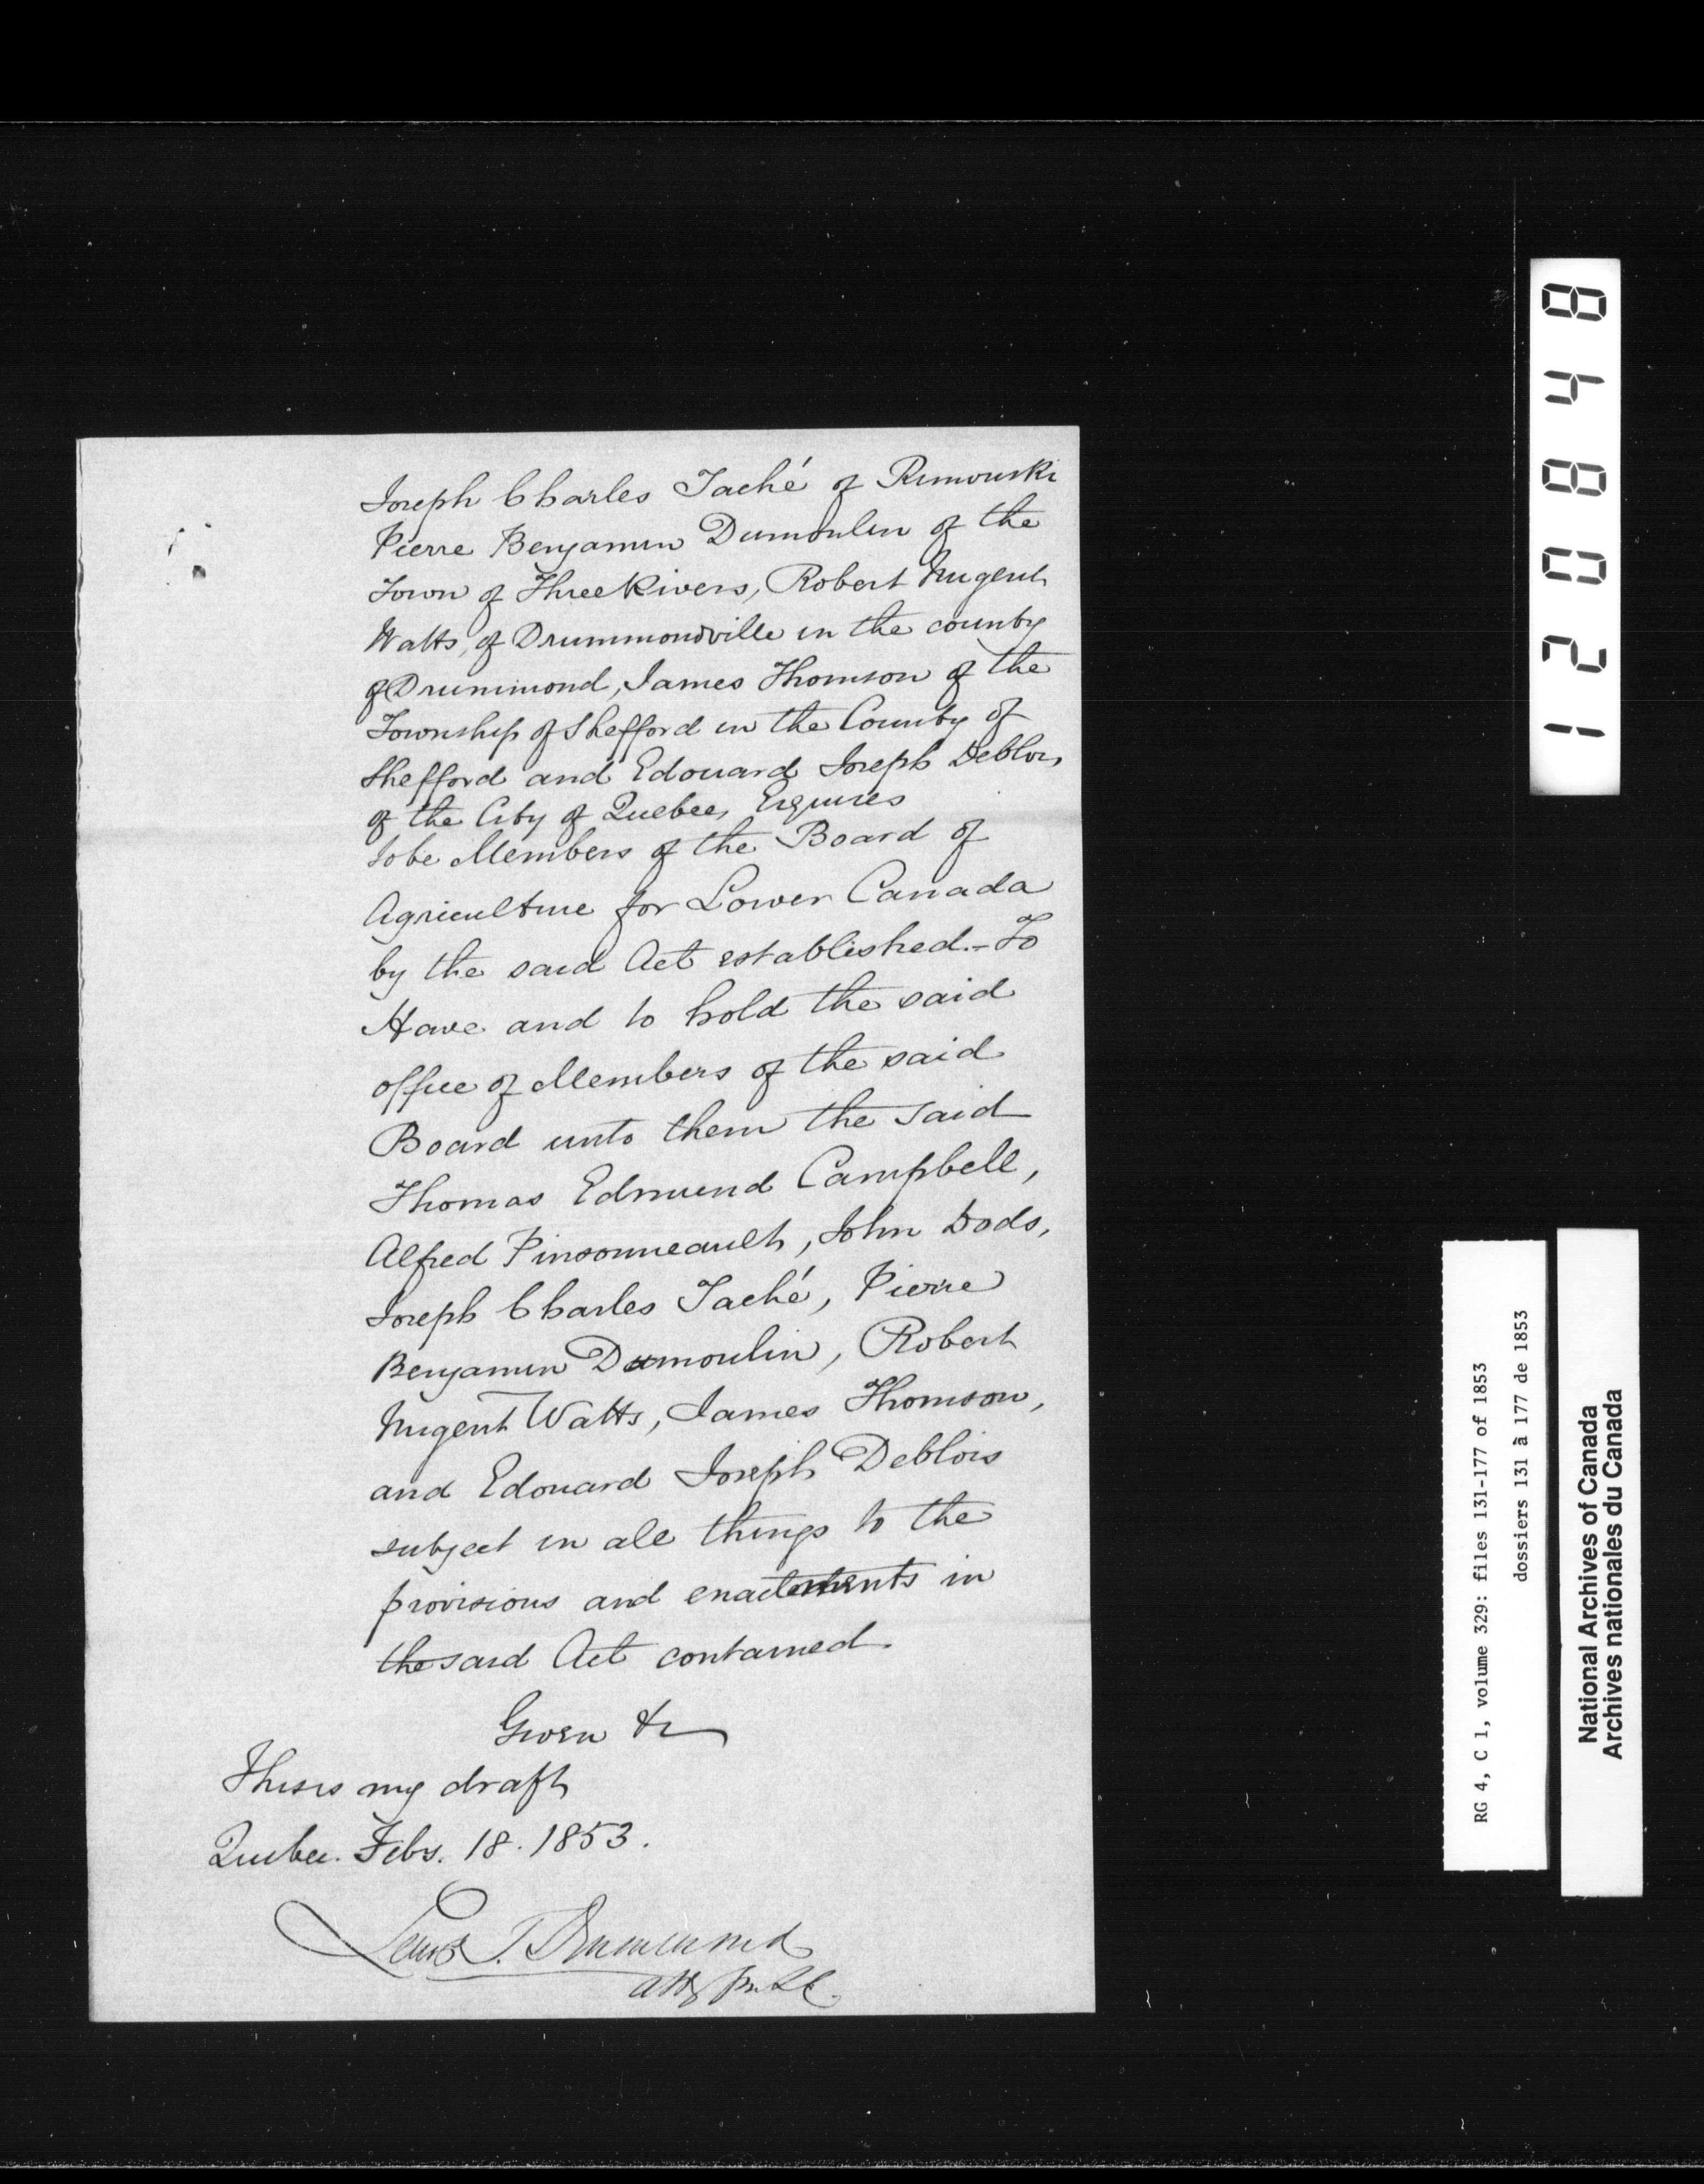 Joseph Charles Taché of Rimouski
Pierre Benjamin Dumoulin of the
Town of Three Rivers, Robert Nugent
Watts, of Drummondville in the county
of Drummond, James Thomson of the
Township of Shefford in the County of
Shefford and Edouard Joseph Deblois
of the City of Quebec, Esquires
to be Members of the Board of
Agriculture for Lower Canada
by the said Act established.- To
Have and to hold the said
office of Members of the said
Board unto them the said
Thomas Edmund Campbell,
Alfred Pinsonneault, John Dods,
Joseph Charles Taché, Pierre
Benjamin Dumoulin, Robert
Nugent Watts, James Thomson,
and Edouard Joseph Deblois
subject in all things to the
provisions and enactments in
the said Act contained
Given &c
This is my draft
Quebec. Feby. 18. 1853.
Lewis T. Drummond
Atty
120848
RG 4, C 1, volume 329: files 131-177 of 1853
dossiers 131 à 177 de 1853
National Archives of Canada
Archives nationales du Canada